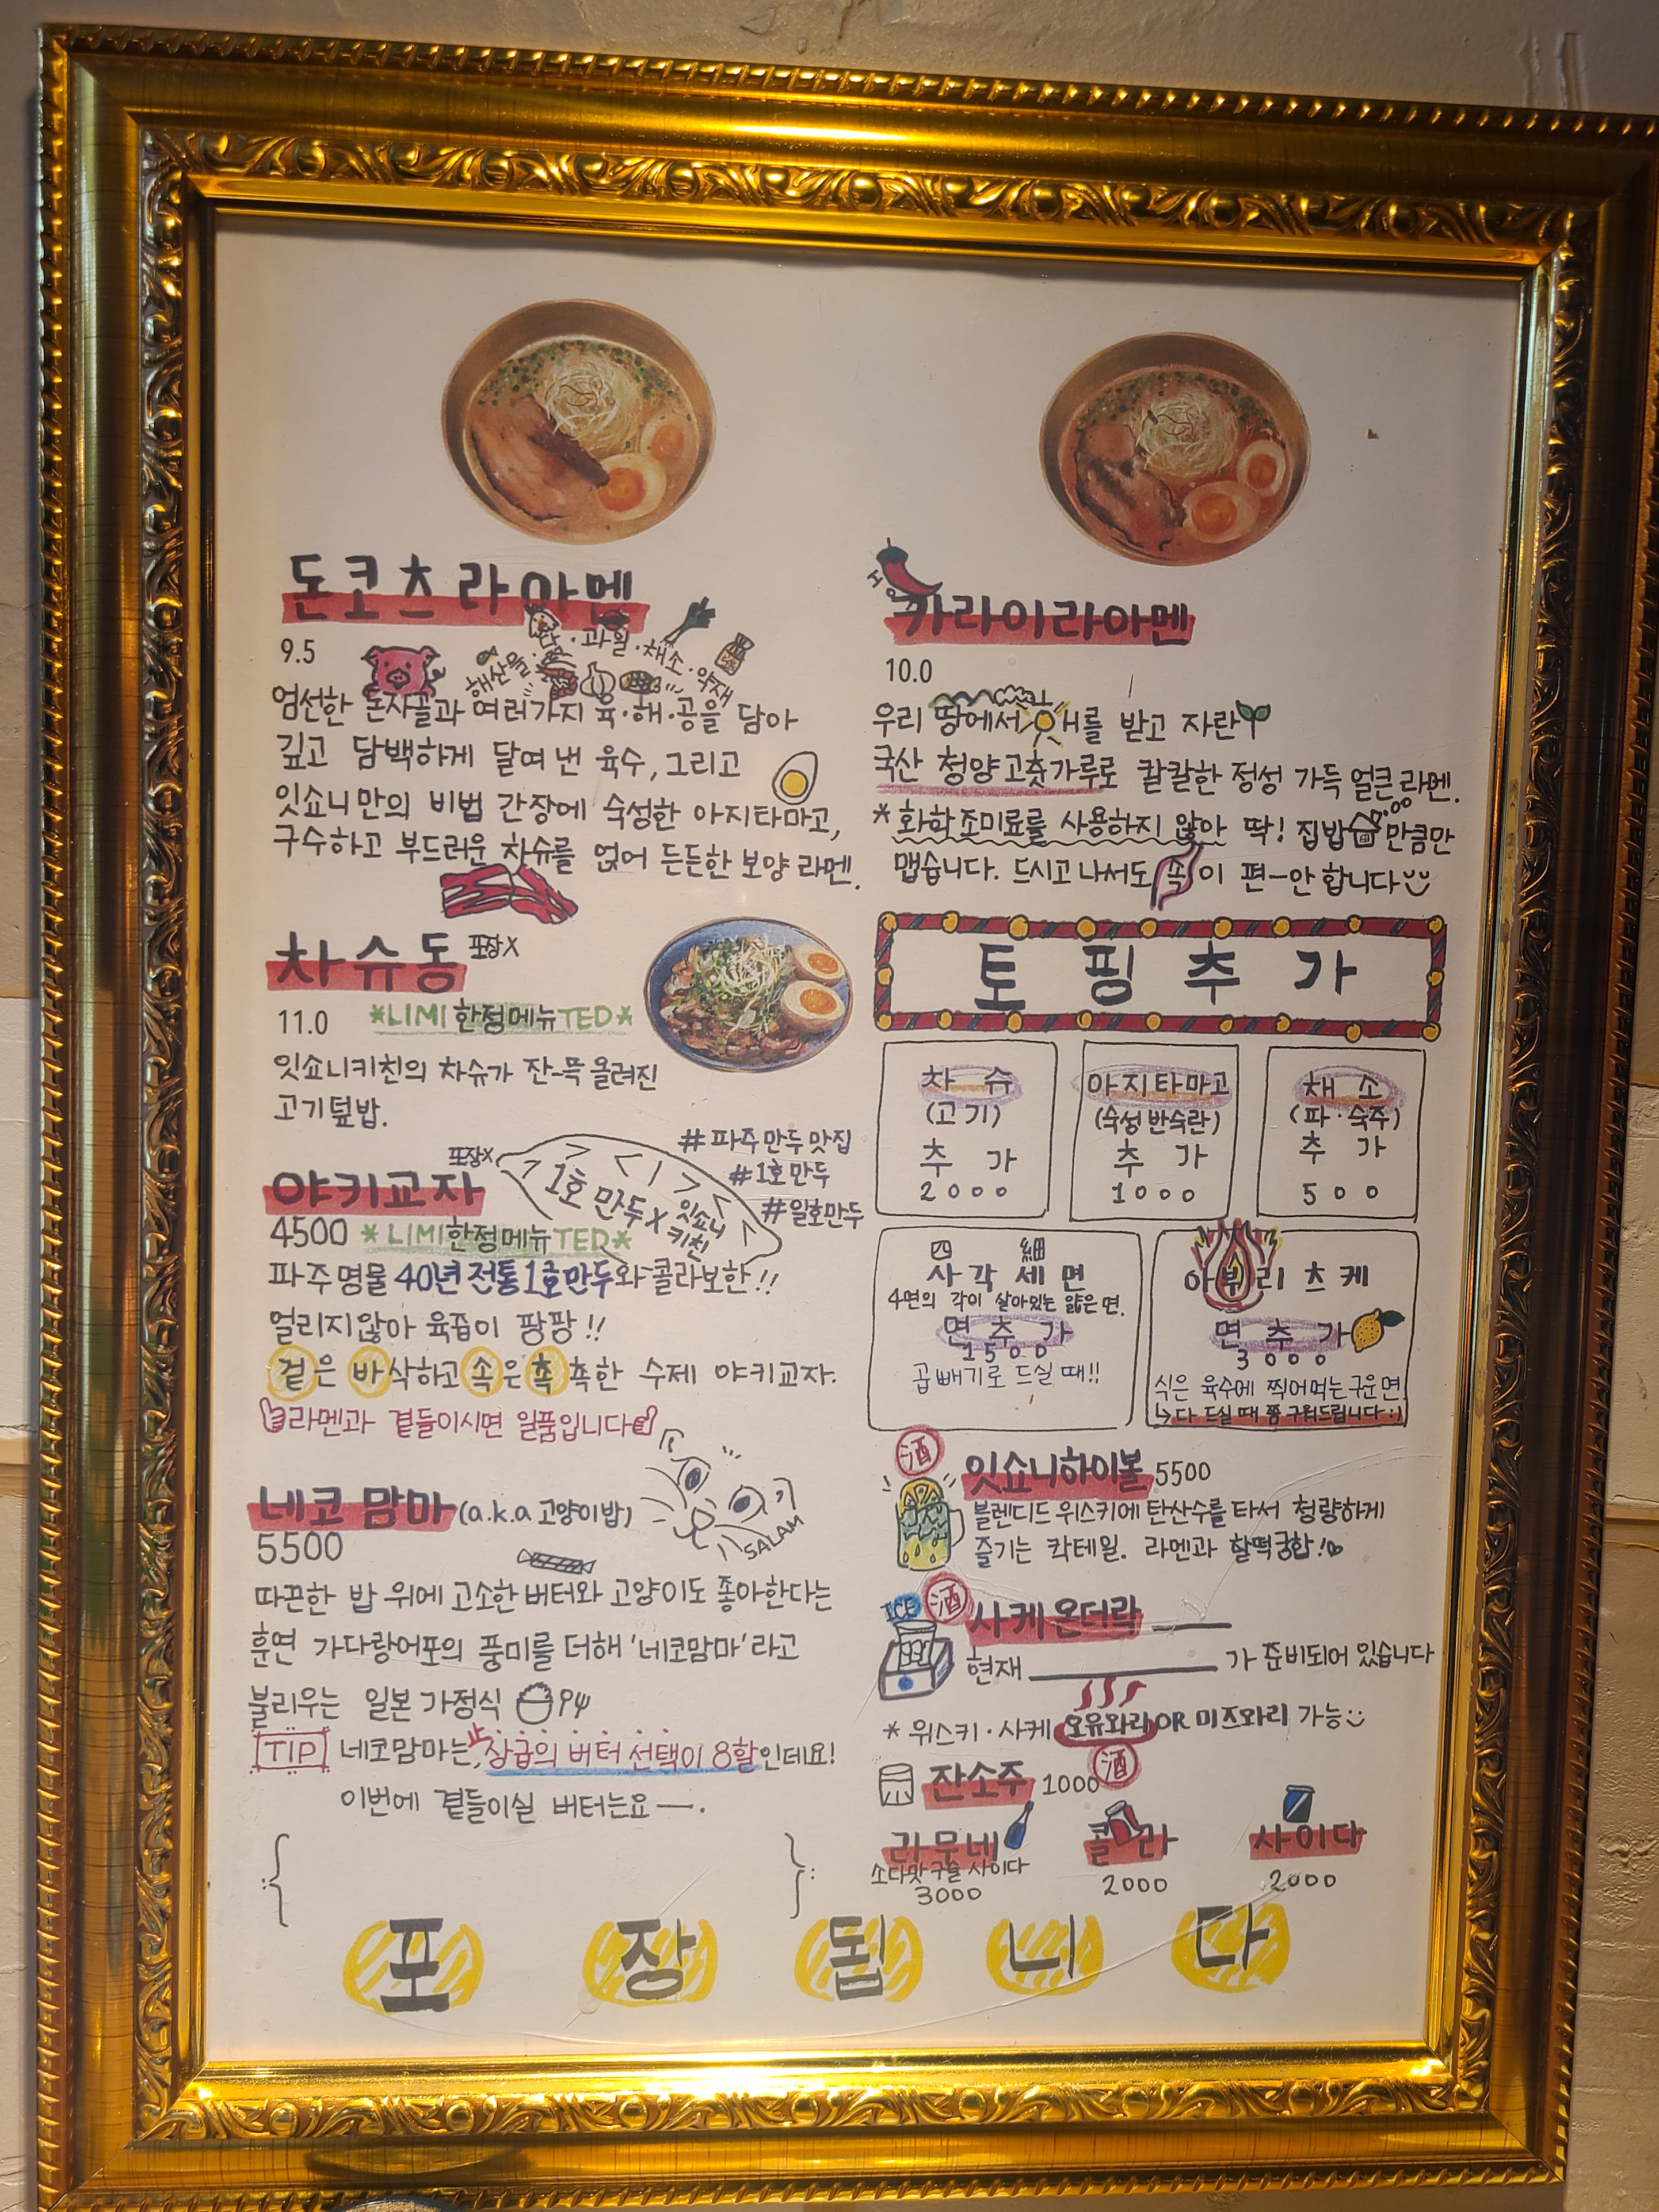 돈코츠라아멘
9.5
해산물·닭·과일·채소·약재
엄선한 돈사골과 여러가지 육·해·공을 담아
깊고 담백하게 달여 낸 육수, 그리고
잇쇼니만의 비법 간장에 숙성한 아지타마고,
구수하고 부드러운 차슈를 얹어 든든한 보양 라멘.
차슈동 포장X
11.0 *LIMI한정메뉴TED*
잇쇼니키친의 차슈가 잔-뜩 올려진
고기덮밥.
야키교자 포장X
1호 만두 X 잇쇼니
키친
#파주만두맛집
#1호만두
#일호만두
4500 *LIMI한정메뉴TED*
파주명물 40년 전통 1호만두와 콜라보한!!
얼리지않아 육즙이 팡팡!!
겉은 바삭하고 속은 촉촉한 수제 야키교자.
라멘과 곁들이시면 일품입니다
네코맘마(a.k.a 고양이밥)
SALAM
5500
따끈한 밥 위에 고소한 버터와 고양이도 좋아한다는
훈연 가다랑어포의 풍미를 더해 '네코맘마'라고
불리우는 일본 가정식
TIP 네코맘마는, 상급의 버터 선택이 8할인데요!
이번에 곁들이실 버터는요—.
{ }
HOT
카라이라아멘
10.0
우리 땅에서 해를 받고 자란
국산 청양고춧가루로 칼칼한 정성 가득 얼큰 라멘.
*화학조미료를 사용하지 않아 딱! 집밥만큼만
맵습니다. 드시고 나서도 속이 편-안합니다
토핑추가
차슈
(고기)
추가
2000
아지타마고
(숙성반숙란)
추가
1000
채소
(파·숙주)
추가
500
四 細
사각세면
4면의 각이 살아있는 얇은 면.
면추가
1500
곱빼기로 드실 때!!
아부리츠케
면추가
3000
식은 육수에 찍어먹는 구운면
↳다 드실 때 쯤 구워드립니다:)
酒
잇쇼니하이볼 5500
블렌디드 위스키에 탄산수를 타서 청량하게
즐기는 칵테일. 라멘과 찰떡궁합!
ICE 酒
사케온더락
현재 가 준비되어 있습니다
*위스키·사케 오유와리 OR 미즈와리 가능
잔소주 1000 酒
라무네
소다맛 구슬 사이다
3000
콜라
2000
사이다
2000
포장됩니다